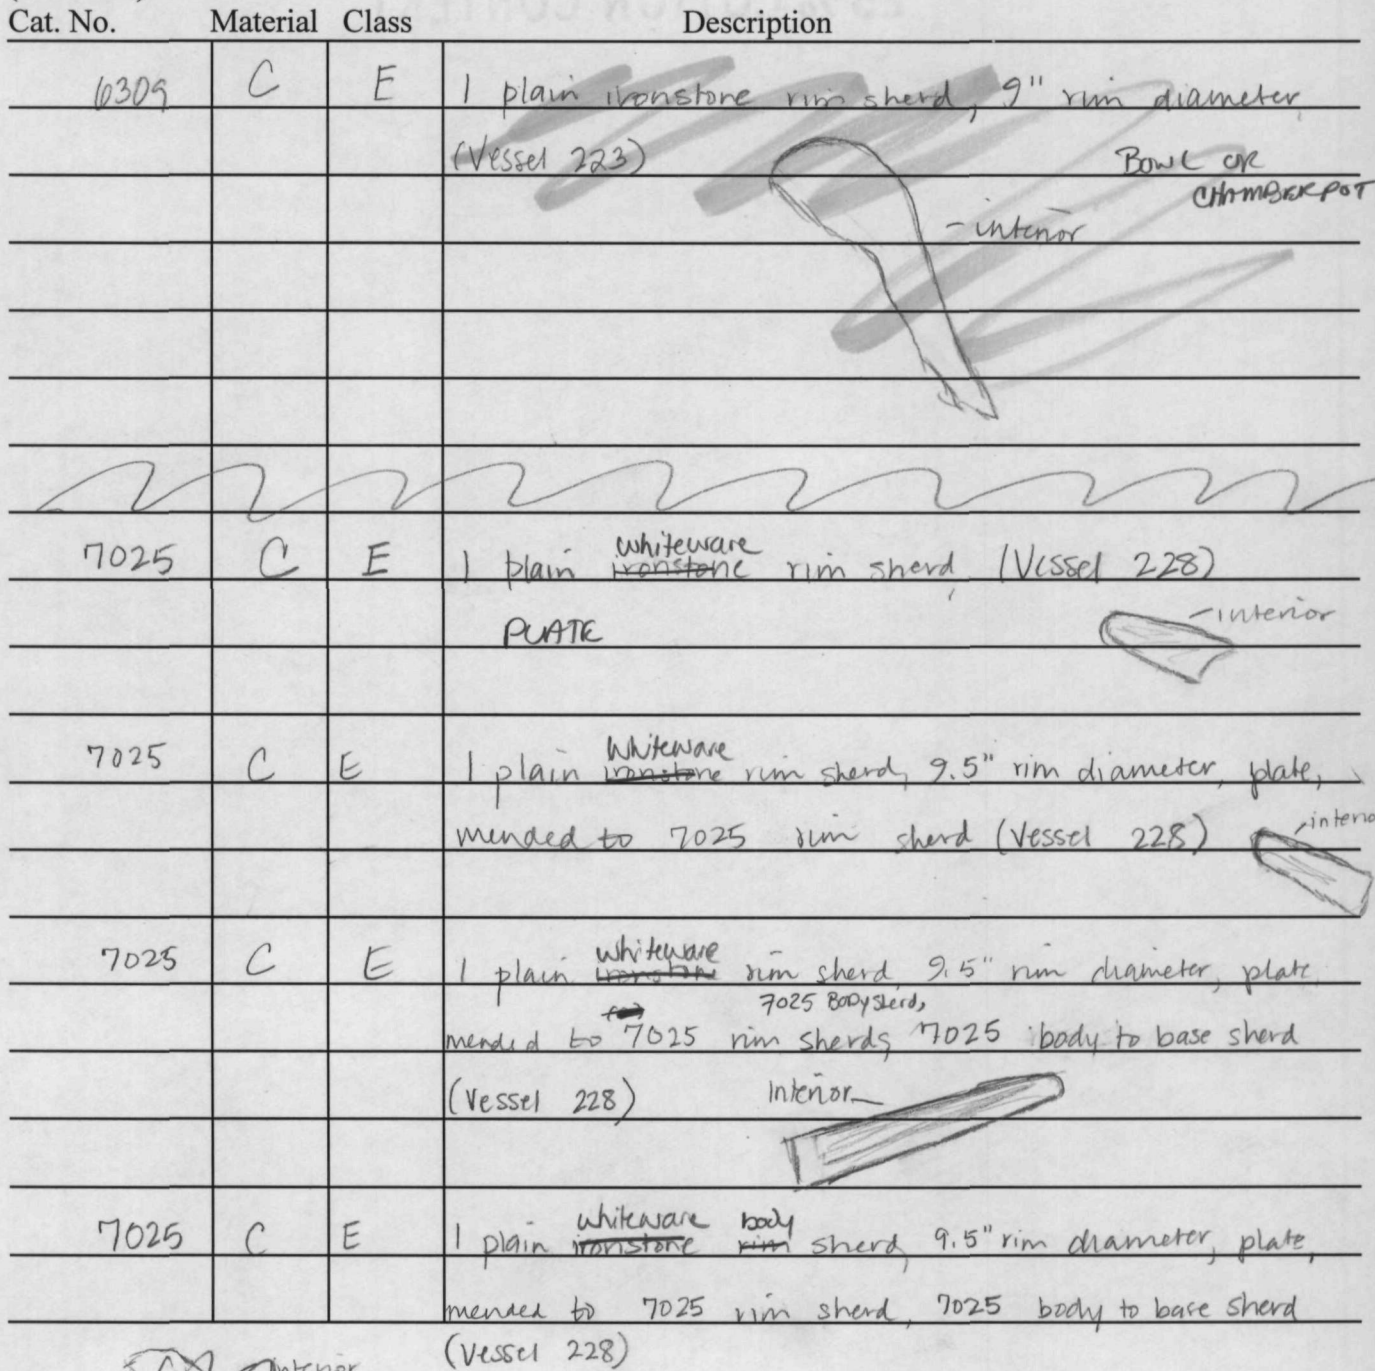 Cat. No. Material Class Description
6309 C E 1 plain ironstone rim sherd, 9" rim diameter
(Vessel 223) BOWL OR
CHAMBERPOT
- interior
whiteware
7025 C E 1 plain ironstone rim sherd, (Vessel 228)
PLATE - interior
Whiteware
7025 C E 1 plain ironstone rim sherd, 9.5" rim diameter, plate,
mended to 7025 rim sherd (Vessel 228) interio
whiteware
7025 C E 1 plain ironstone rim sherd, 9.5" rim diameter, plate
7025 BODY sherd,
mended to 7025 rim sherds, 7025 body to base sherd
(Vessel 228) Interior
whiteware body
7025 C E 1 plain ironstone rim sherd, 9.5" rim diameter, plate,
mended to 7025 rim sherd, 7025 body to base sherd
(Vessel 228)
interior